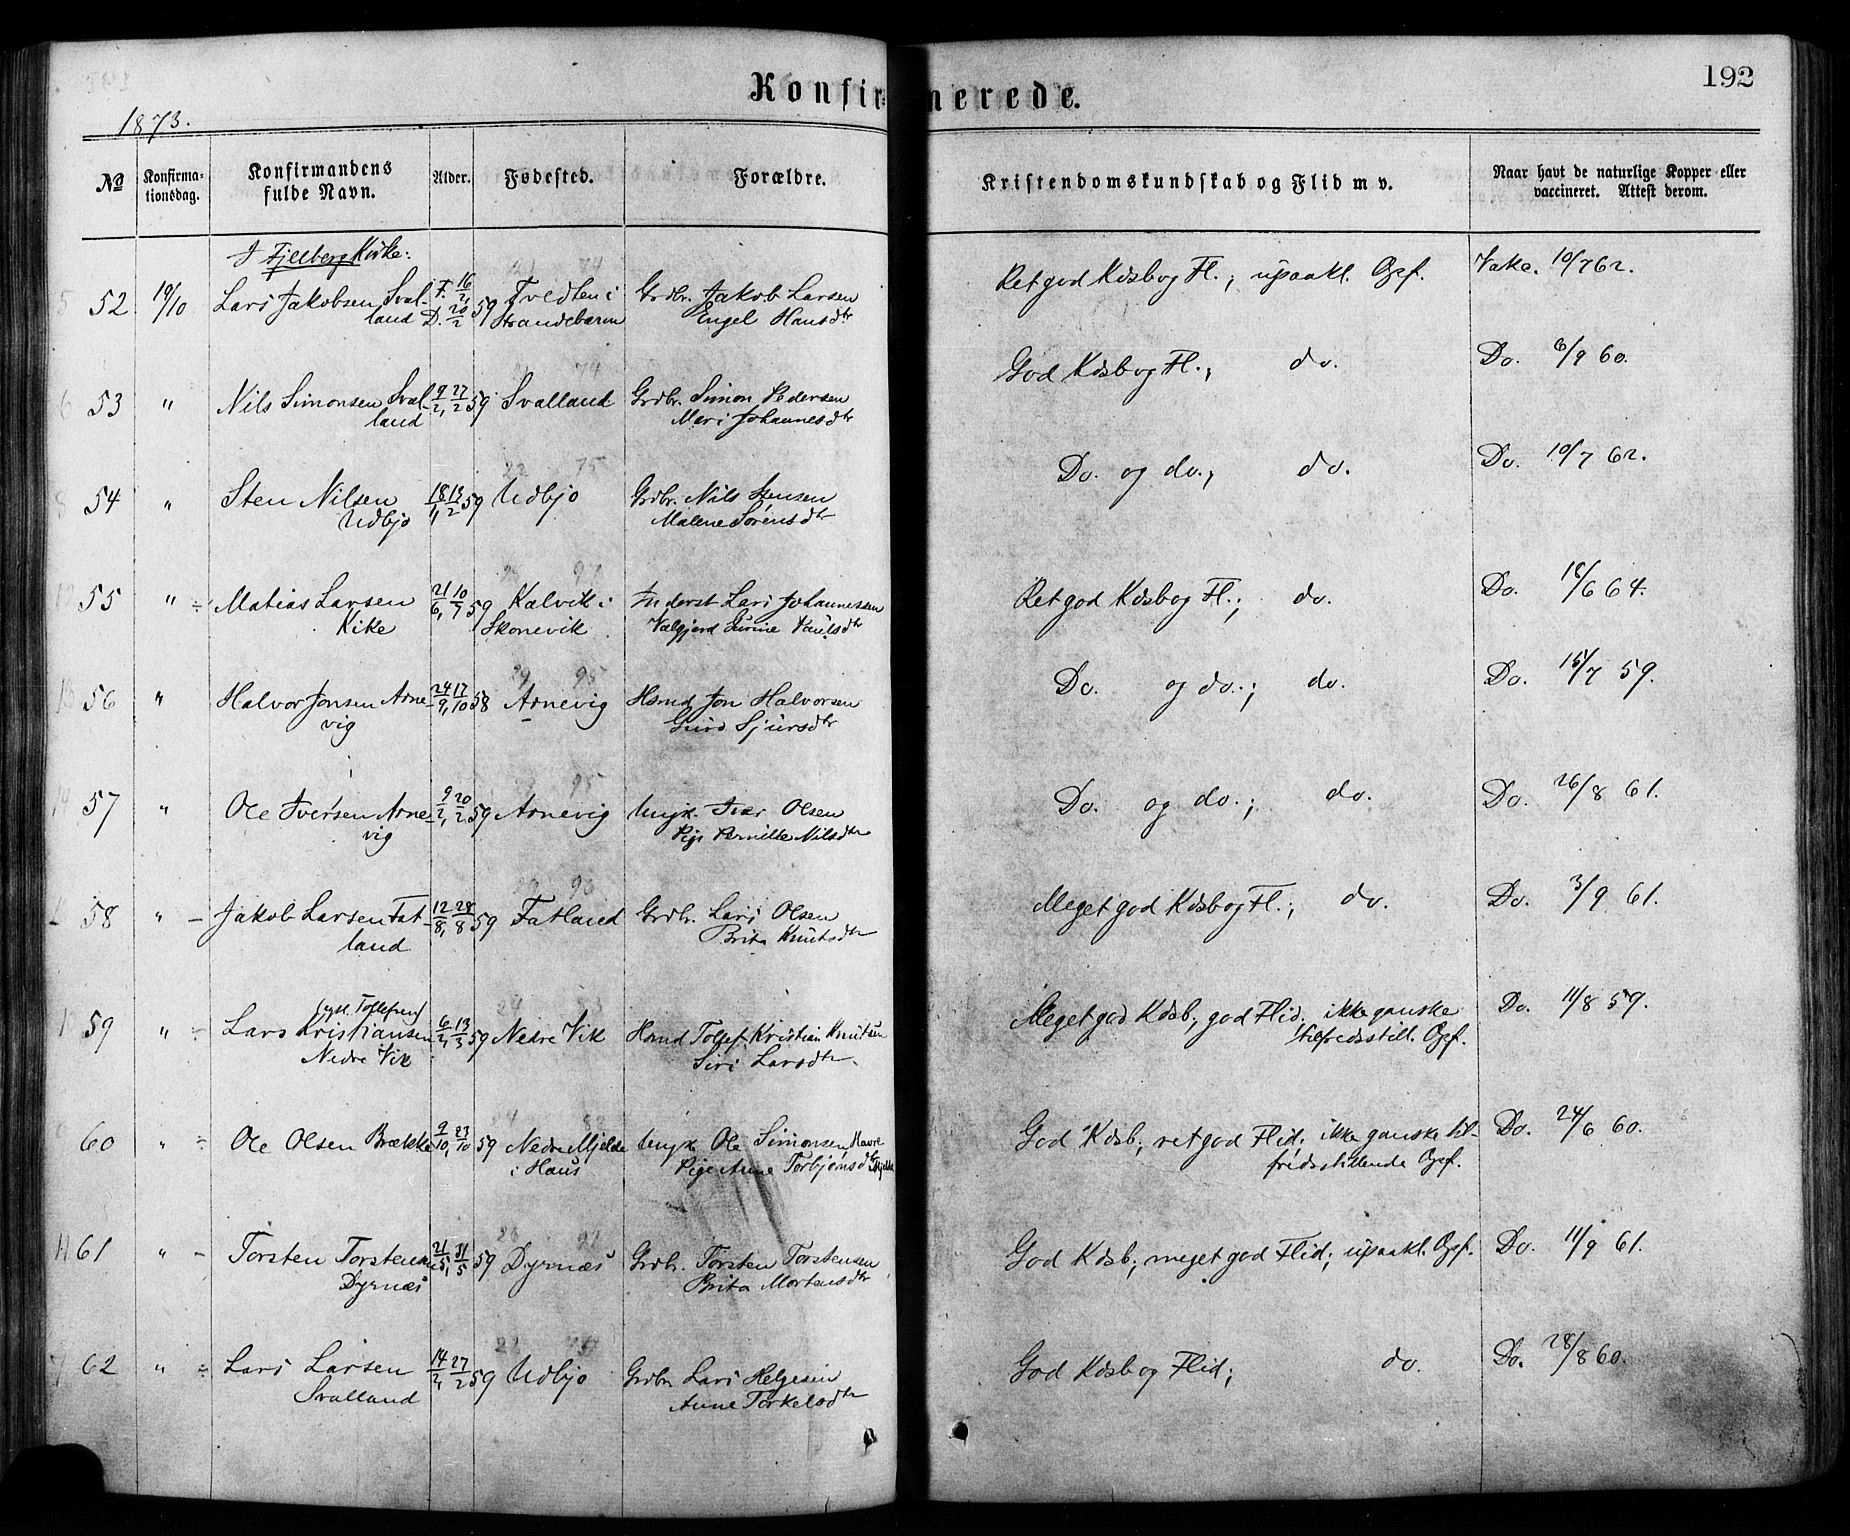 Konfirmerede.
192
1873.
No
Konfirma-
tionsdag.
Konfirmandens
fulde Navn.
Alder.
Fødested.
Forældre.
Kristendomskundskab og Flid m v.
Naar havt de naturlige Kopper eller
vaccineret. Attest derom.
I Fjelberg Kirke:
52 19/10 Lars Jakobsen Sval- F. 16/2, 59 Tvedten i Grdbr. Jakob Larsen Ret god Kdsb og Fl.; upaakl. Opf. Vakc. 10/7 62.
land D. 20/2 Strandebarm Engel Hansdtr
53 " Nils Simonsen Sval- 9/2, 27/2 59 Svalland Grdbr. Simon Pedersen God Kdsb og Fl.; do. Do. 6/9 60.
land Mari Johannesdtr
54 " Sten Nilsen 18/1, 13/2 59 Udbjo Grdbr. Nils Stensen Do. og do.; do. Do. 10/7 62.
Udbjo Malene Sørensdtr
55 " Matias Larsen 21/6, 10/7 59 Kalvik i Inderst Lars Johannessen Ret god Kdsb og Fl.; do. Do. 18/6 64.
Kike Skonevik Valgjerd Surine Paulsdtr
56 " Halvor Jonsen Arne- 24/9, 17/10 58 Arnevig Hsmd Jon Halvorsen Do. og do.; do. Do. 15/7 59.
vig Guro Sjursdtr
57 " Ole Iversen Arne- 9/2, 20/2 59 Arnevig Ungk. Ivar Olsen Do. og do.; do. Do. 26/8 61.
vig Pige Pernille Nilsdtr
58 " Jakob Larsen Fat- 12/8, 28/8 59 Fatland Grdbr. Lars Olsen Meget god Kdsb og Fl.; do. Do. 3/9 61.
land Brita Knutsdtr
59 " Lars Kristiansen 6/2, 13/3 59 Nedre Vik Hsmd Tollef Kristian Knutsen Meget god Kdsb; god Flid; ikke ganske Do. 11/8 59.
Nedre Vik Siri Larsdtr tilfredsstill. Opf.
60 " Ole Olsen Brække 9/10, 23/10 59 Nedre Mjelde Ungk. Ole Simonsen Havre God Kdsb; ret god Flid; ikke ganske til- Do. 24/6 60.
i Haus Pige Anne Torbjørnsdtr Mjelde fridsstillende Opf.
61 " Torsten Torstensen 21/5, 31/5 59 Dyrnæs Grdbr. Torsten Torstensen God Kdsb; meget god Flid; upaakl. Opf. Do. 11/9 61.
Dyrnæs Brita Mortensdtr
62 " Lars Larsen 14/2, 27/2 59 Udbjo Grdbr. Lars Helgesen God Kdsb og Flid; do. Do. 28/8 60.
Svalland Anne Torkelsdtr